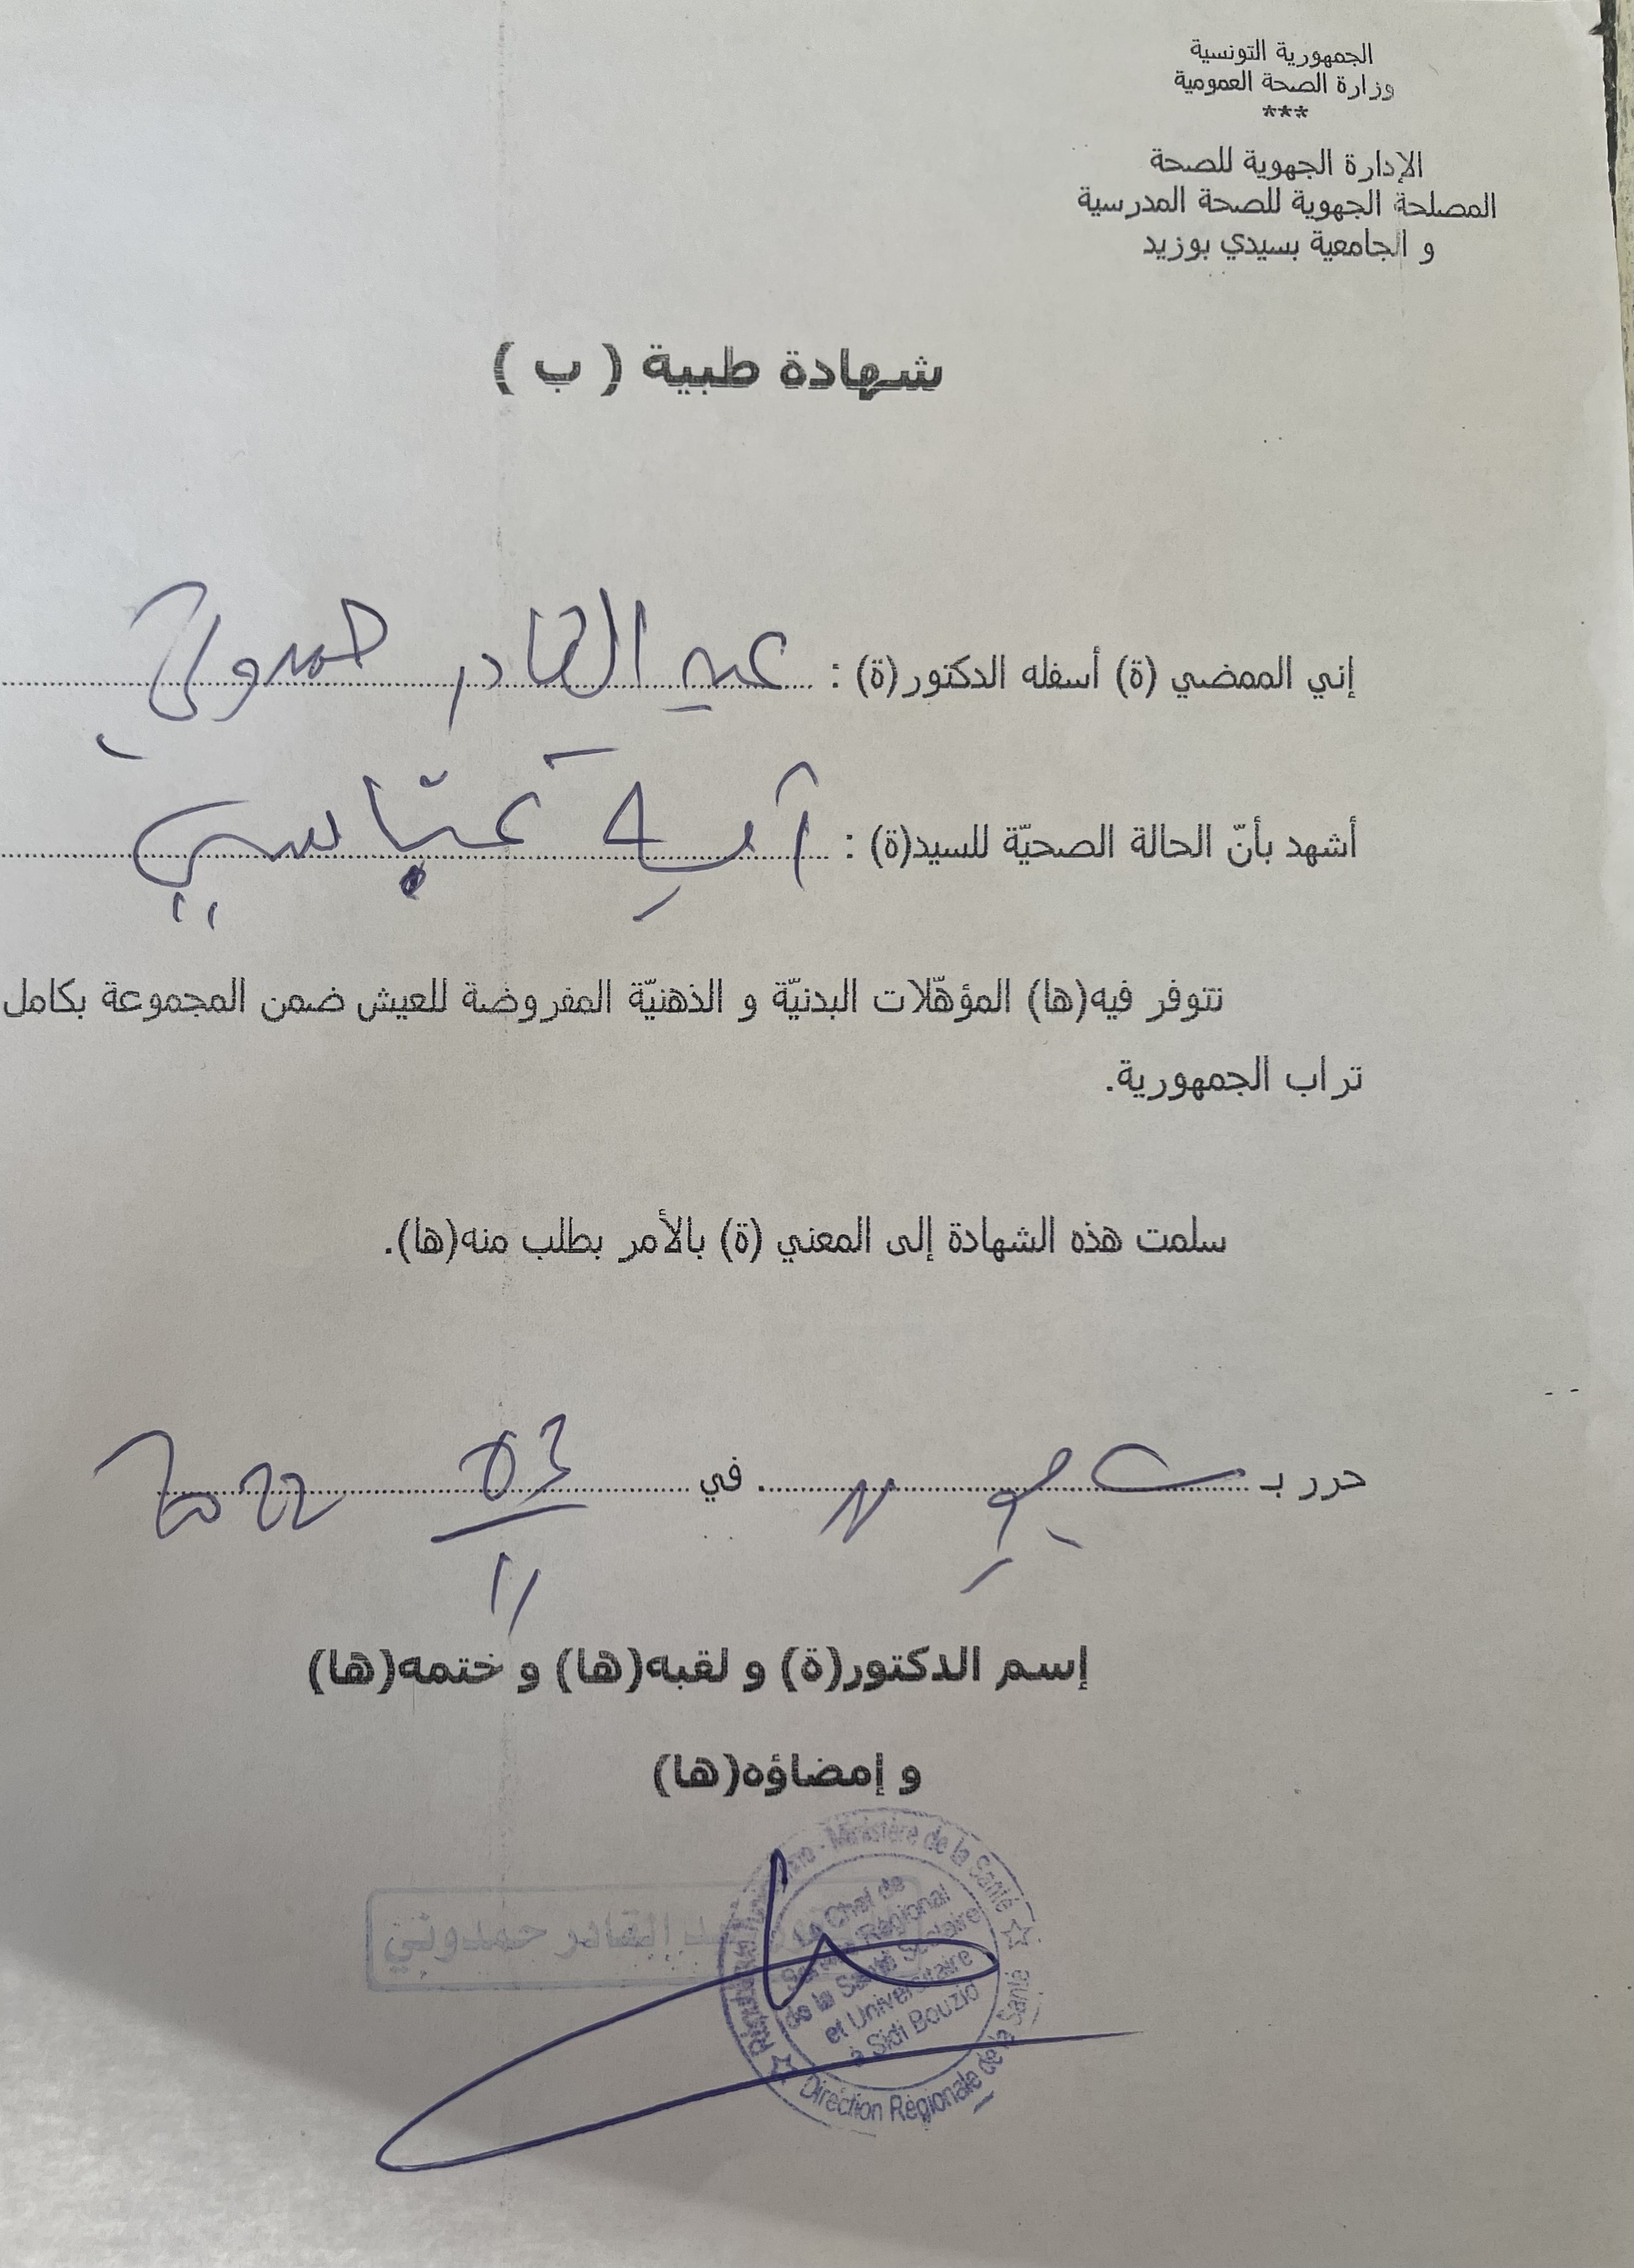 الجمهورية التونسية
وزارة الصحة العمومية
***
الإدارة الجهوية للصحة
المصلحة الجهوية للصحة المدرسية
و الجامعية بسيدي بوزيد
شهادة طبية ( ب )
إني الممضي (ة) أسفله الدكتور(ة) : عبد القادر حمدوني
أشهد بأنّ الحالة الصحيّة للسيد(ة) : آية عبّاسي
تتوفر فيه(ها) المؤهّلات البدنيّة و الذهنيّة المفروضة للعيش ضمن المجموعة بكامل
تراب الجمهورية.
سلمت هذه الشهادة إلى المعني (ة) بالأمر بطلب منه(ها).
حرر بـ في 03/11 2022
إسم الدكتور(ة) و لقبه(ها) و ختمه(ها)
و إمضاؤه(ها)
عبد القادر حمدوني
Ministère de la Santé
Le Chef de
Service Régional
de la Santé Scolaire
et Universitaire
à Sidi Bouzid
Direction Régionale de la Santé